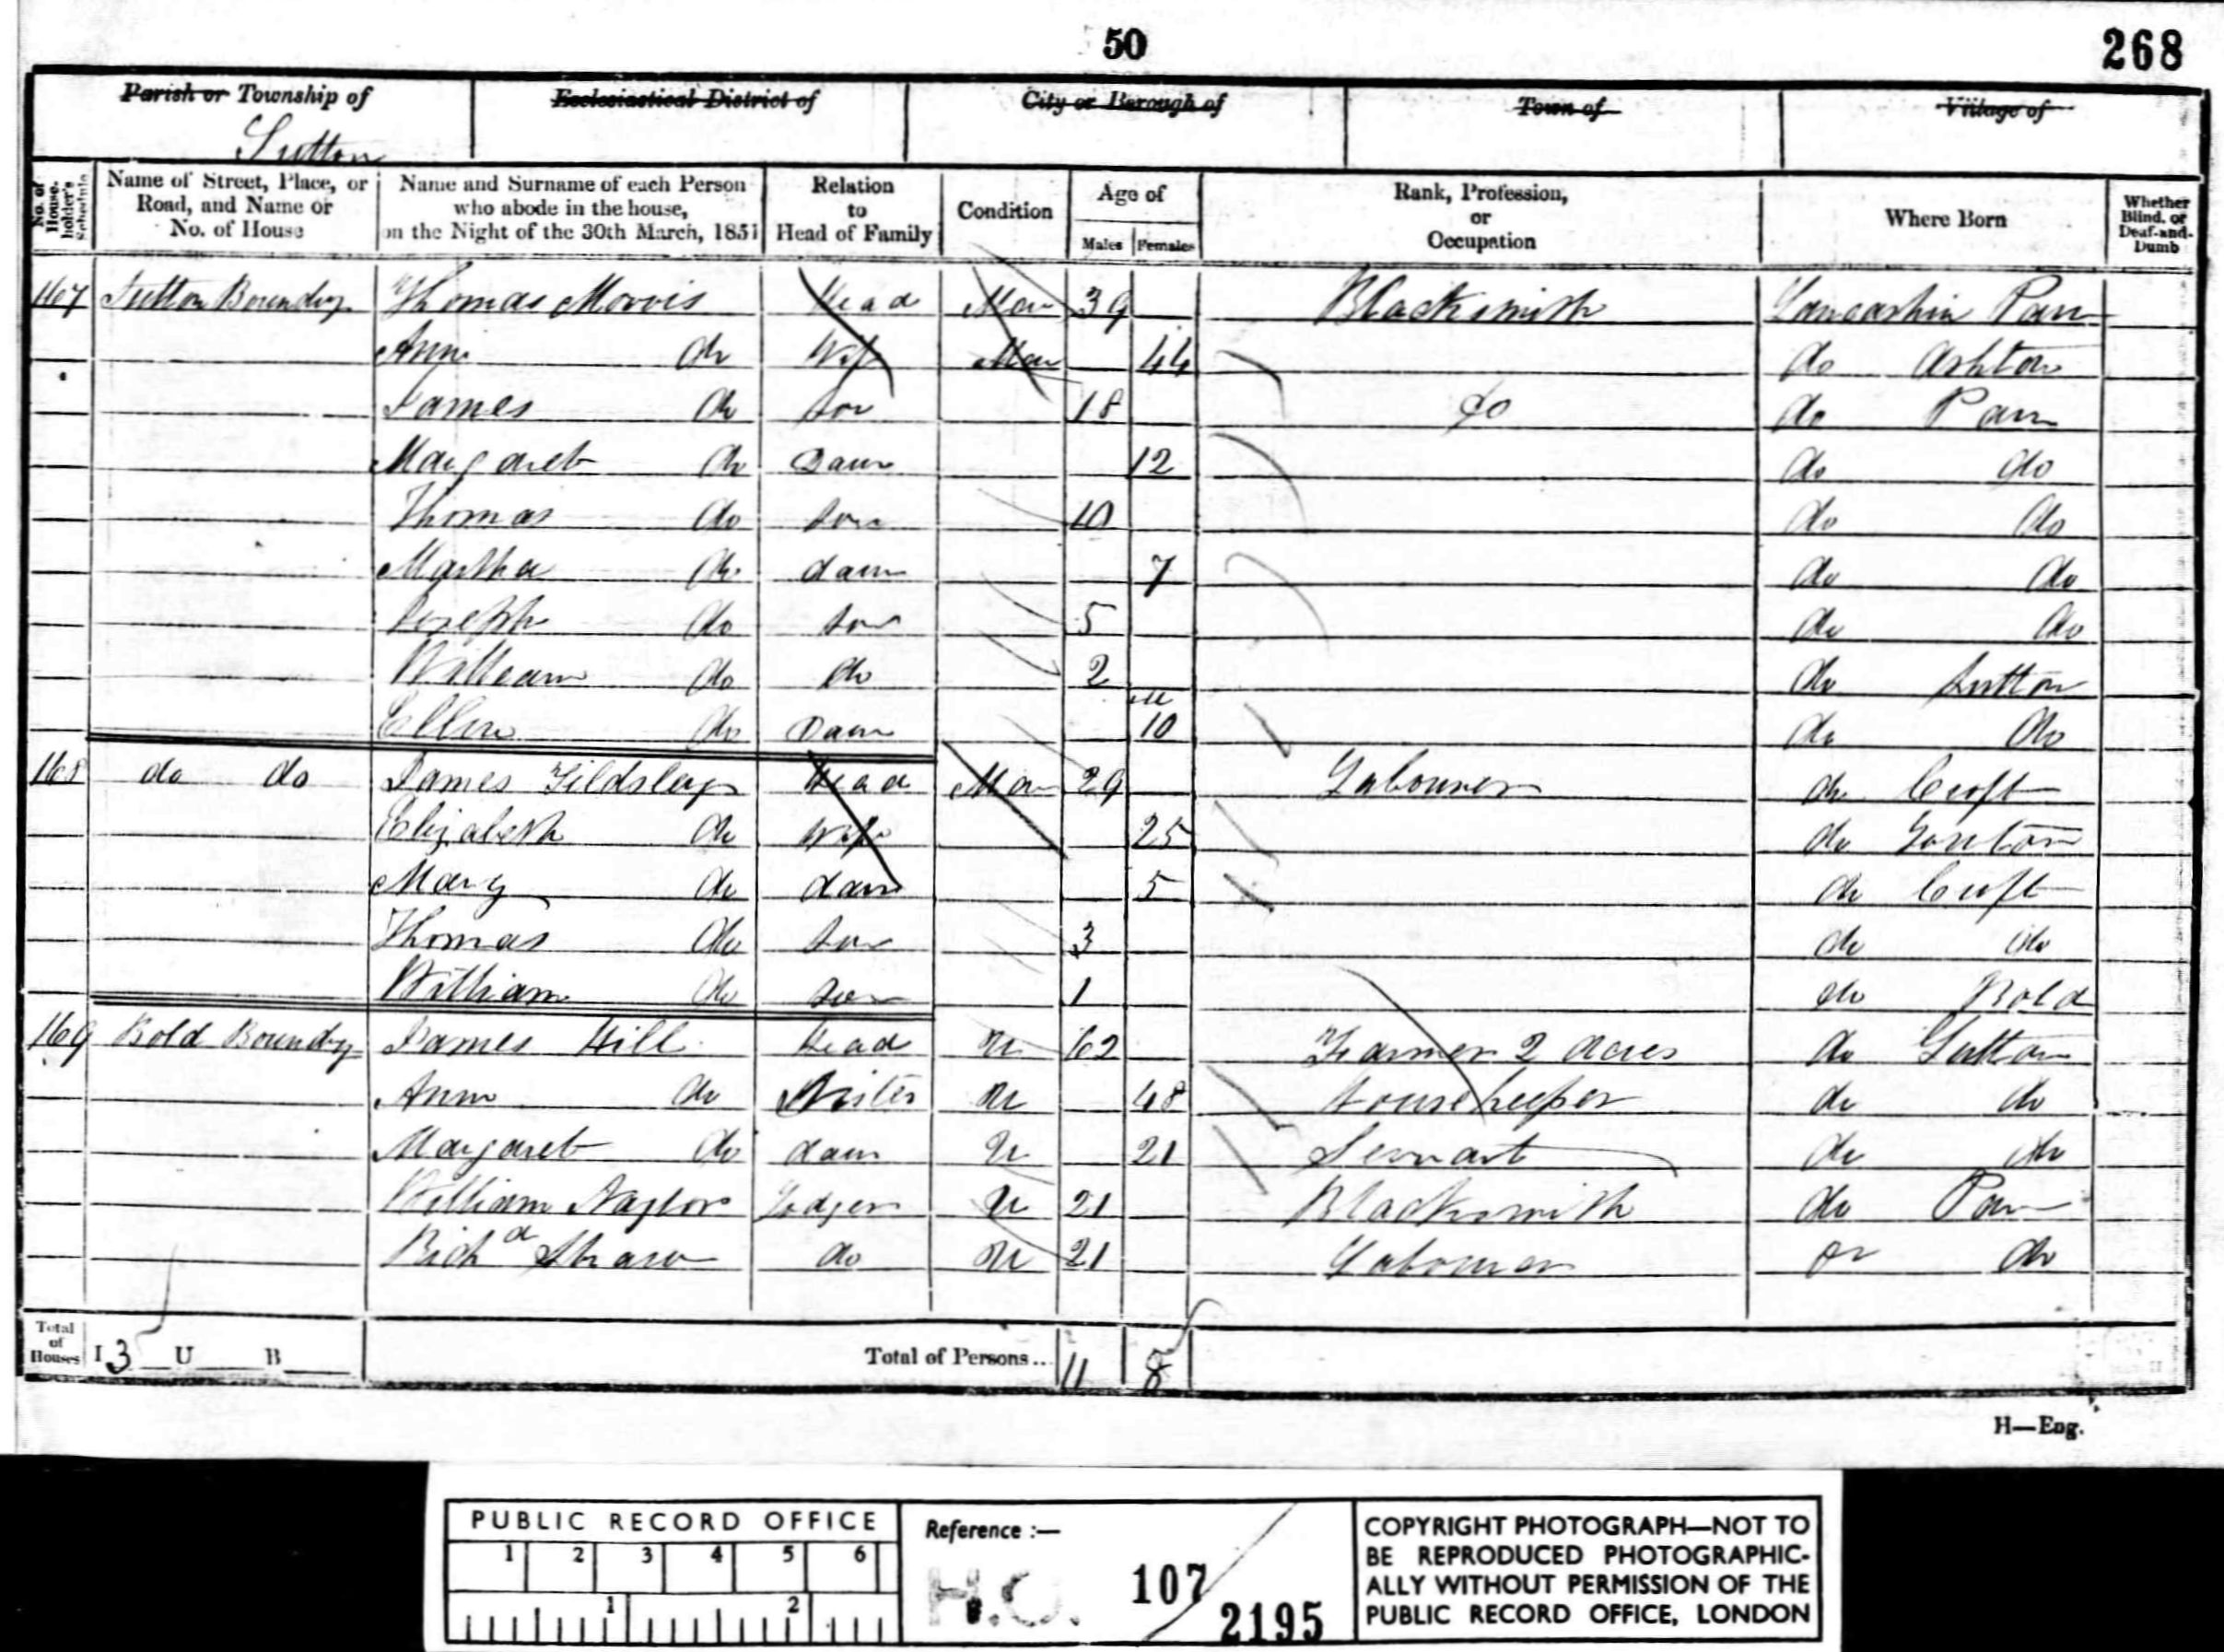 50
268
Parish or Township of Ecclesiastical District of City or Borough of Town of Village of
Sutton
No. of House-holder's Schedule Name of Street, Place, or Road, and Name or No. of House Name and Surname of each Person who abode in the house, on the Night of the 30th March, 1851 Relation to Head of Family Condition Age of Males Females Rank, Profession, or Occupation Where Born Whether Blind, or Deaf-and-Dumb
167 Sutton Boundry Thomas Morris Head Mar 39 Blacksmith Lancashire Parr
Ann do Wife Mar 44 do Ashton
James do Son 18 do do Parr
Margaret do Daur 12 do do
Thomas do Son 10 do do
Martha do daur 7 do do
Joseph do Son 5 do do
William do do 2 do Sutton
Ellen do Daur m 10 do do
168 do do James Tildsley Head Mar 29 Labourer do Croft
Elizabeth do Wife 25 do
Mary do daur 5 do Croft
Thomas do Son 3 do do
William do Son 1 do Bold
169 Bold Boundry James Hill Head U 62 Farmer 2 Acres do Sutton
Ann do Sister U 48 Housekeeper do do
Margaret do daur U 21 Servant do do
William Naylor Lodger U 21 Blacksmith do Parr
Richd Shaw do U 21 Labourer do do
Total of Houses I 3 U B Total of Persons... 11 8
H—Eng.
PUBLIC RECORD OFFICE
1 2 3 4 5 6
1 2
Reference :—
H.O. 107/2195
COPYRIGHT PHOTOGRAPH—NOT TO
BE REPRODUCED PHOTOGRAPHIC-
ALLY WITHOUT PERMISSION OF THE
PUBLIC RECORD OFFICE, LONDON